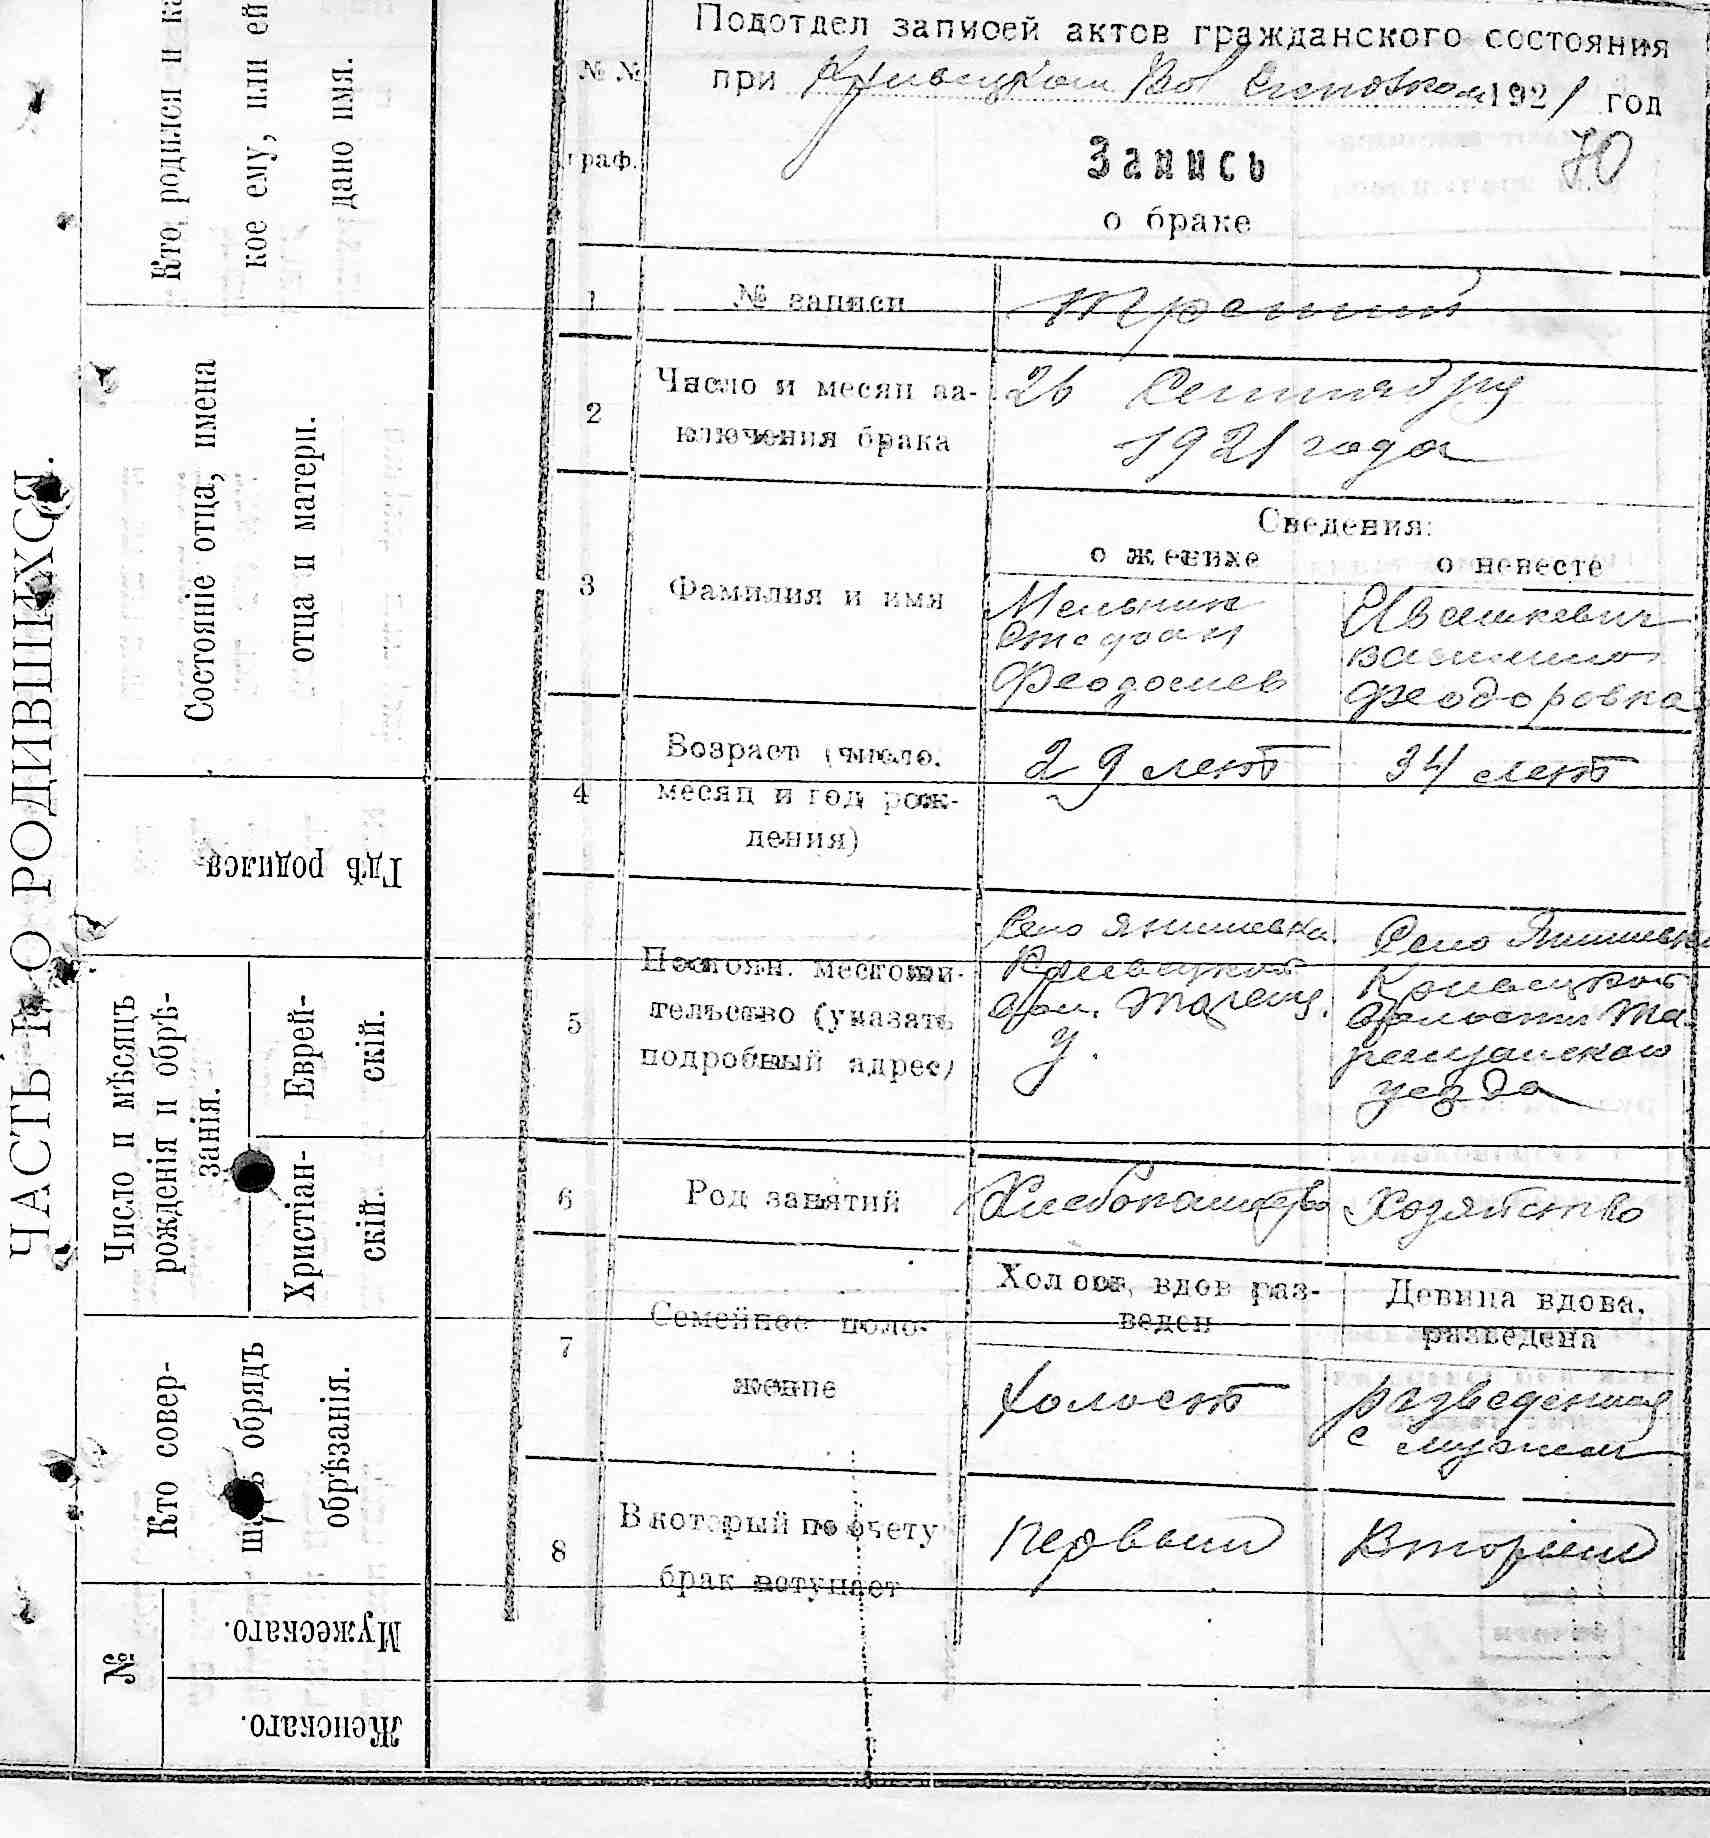 ЧАСТЬ I. О РОДИВШИХСЯ.
Кто родился и
кое ему, или ей
дано имя.
Состояніе отца, имена
отца и матери.
Гдѣ родился
Число и мѣсяцъ
рожденія и обрѣ-
занія.
Еврей-
скій.
Христіан-
скій.
Кто совер-
обрядъ
обрѣзанія.
№
Мужескаго.
Женскаго.
Подотдел записей актов гражданского состояния
при Кривецком Вол 1921 год
№№
граф.
Запись
70
о браке
1
№ записи
Третий
2
Число и месяц за-
ключения брака
26 Сентября
1921 года
3
Фамилия и имя
Сведения:
о женихе
о невесте
Мельник
Стефан
Феодосиев
Ивашкевич
Василина
Феодоровна
4
Возраст (число,
месяц и год рож-
дения)
29 летъ
34 летъ
5
Постоян. местожи-
тельство (указать
подробный адрес)
Село Янишевка
Кривецкой
Вол. Таращ.
у.
Село Янишевка
Кривецкой
Волости Та-
ращанского
уезда
6
Род занятий
Хлебопашество
Хозяйство
7
Семейное поло-
жение
Холост, вдов раз-
веден
Девица вдова,
разведена
холостъ
разведенная
с мужем
8
В который по счету
брак вступает
первый
Вторый